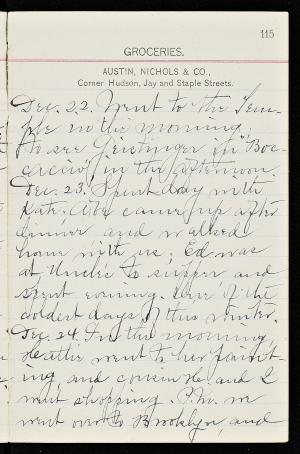 115
GROCERIES.
AUSTIN, NICHOLS & CO.,
Corner Hudson, Jay and Staple Streets.
Dec. 22. Went to the Tem-
ple in the morning,
to see Geistinger in "Boc-
caccio" in the afternoon.
Dec. 23. Spent day with
Kate. Abe came up after
dinner and walked
home with us; Ed was
at Uncle to supper and
spent evening. One of the
coldest days of this winter.
Dec. 24. In the morning,
Hattie went to her paint-
ing, and cousin H. and I
went shopping. P.M. we
went over to Brooklyn, and